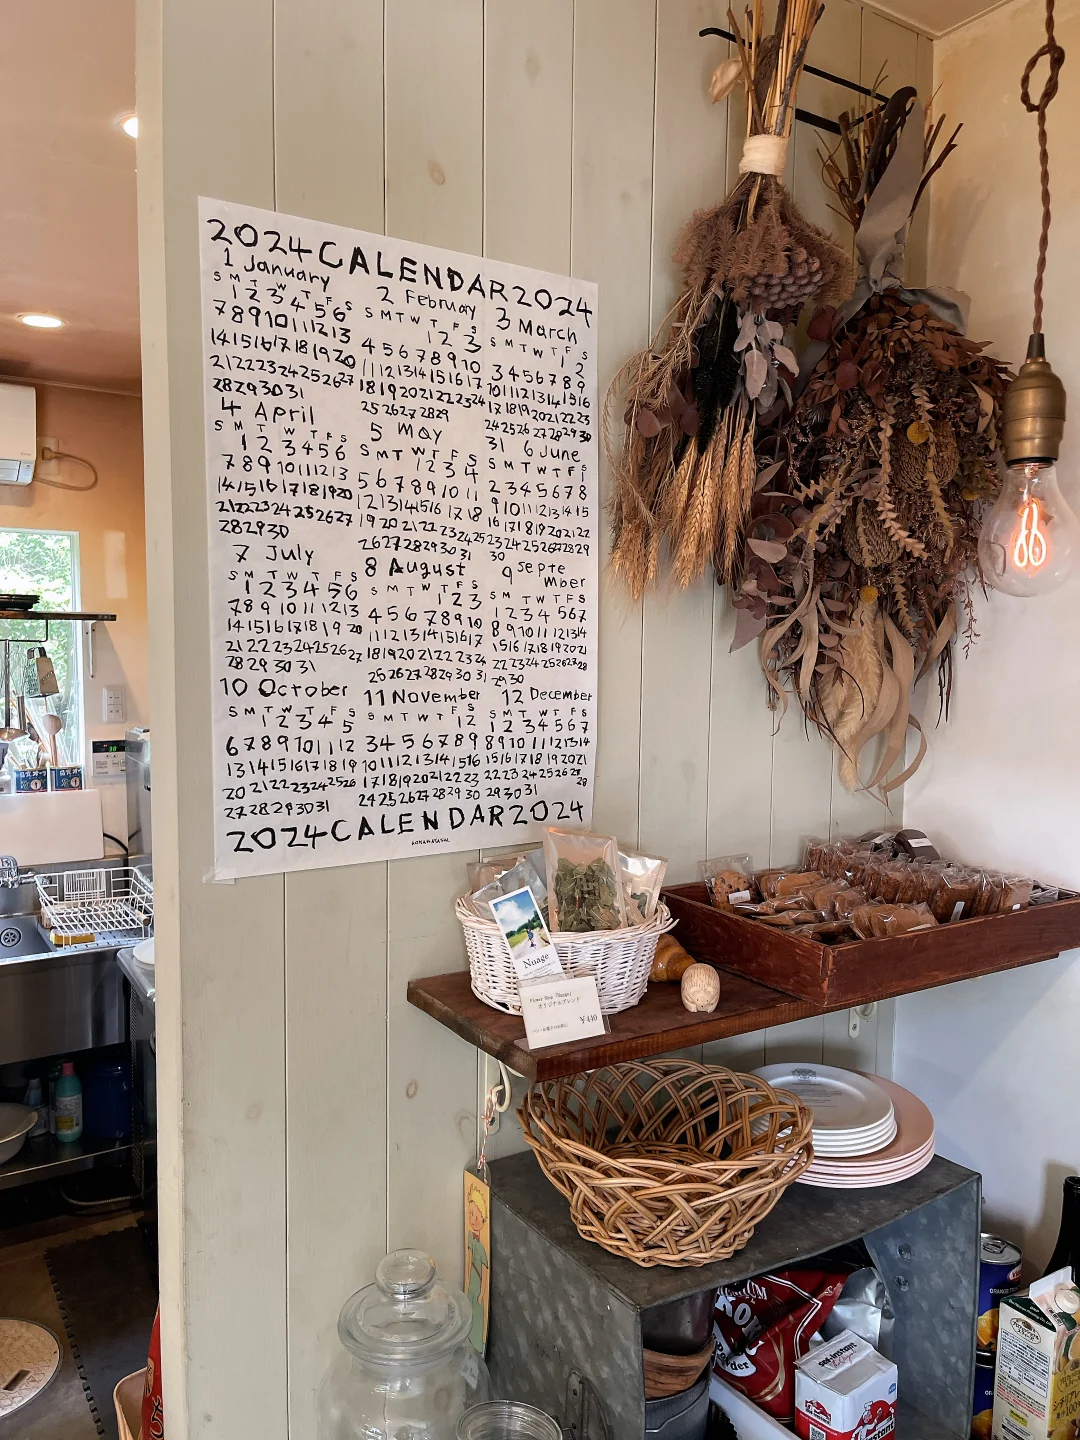 2024CALENDAR2024
1 January
S M T W T F S
1 2 3 4 5 6
7 8 9 10 11 12 13
14 15 16 17 18 19 20
21 22 23 24 25 26 27
28 29 30 31
2 February
S M T W T F S
1 2 3
4 5 6 7 8 9 10
11 12 13 14 15 16 17
18 19 20 21 22 23 24
25 26 27 28 29
3 March
S M T W T F S
1 2
3 4 5 6 7 8 9
10 11 12 13 14 15 16
17 18 19 20 21 22 23
24 25 26 27 28 29 30
31
4 April
S M T W T F S
1 2 3 4 5 6
7 8 9 10 11 12 13
14 15 16 17 18 19 20
21 22 23 24 25 26 27
28 29 30
5 May
S M T W T F S
1 2 3 4
5 6 7 8 9 10 11
12 13 14 15 16 17 18
19 20 21 22 23 24 25
26 27 28 29 30 31
6 June
S M T W T F S
1
2 3 4 5 6 7 8
9 10 11 12 13 14 15
16 17 18 19 20 21 22
23 24 25 26 27 28 29
30
7 July
S M T W T F S
1 2 3 4 5 6
7 8 9 10 11 12 13
14 15 16 17 18 19 20
21 22 23 24 25 26 27
28 29 30 31
8 August
S M T W T F S
1 2 3
4 5 6 7 8 9 10
11 12 13 14 15 16 17
18 19 20 21 22 23 24
25 26 27 28 29 30 31
9 Septe
mber
S M T W T F S
1 2 3 4 5 6 7
8 9 10 11 12 13 14
22 23 24 25 26 27 28
29 30
10 October
S M T W T F S
1 2 3 4 5
6 7 8 9 10 11 12
13 14 15 16 17 18 19
20 21 22 23 24 25 26
27 28 29 30 31
11 November
S M T W T F S
1 2
3 4 5 6 7 8 9
10 11 12 13 14 15 16
17 18 19 20 21 22 23
24 25 26 27 28 29 30
12 December
S M T W T F S
1 2 3 4 5 6 7
8 9 10 11 12 13 14
15 16 17 18 19 20 21
22 23 24 25 26 27
28
29 30 31
2024CALENDAR2024
Nuage
オリジナルブレンド
¥440
Powder
self-instant